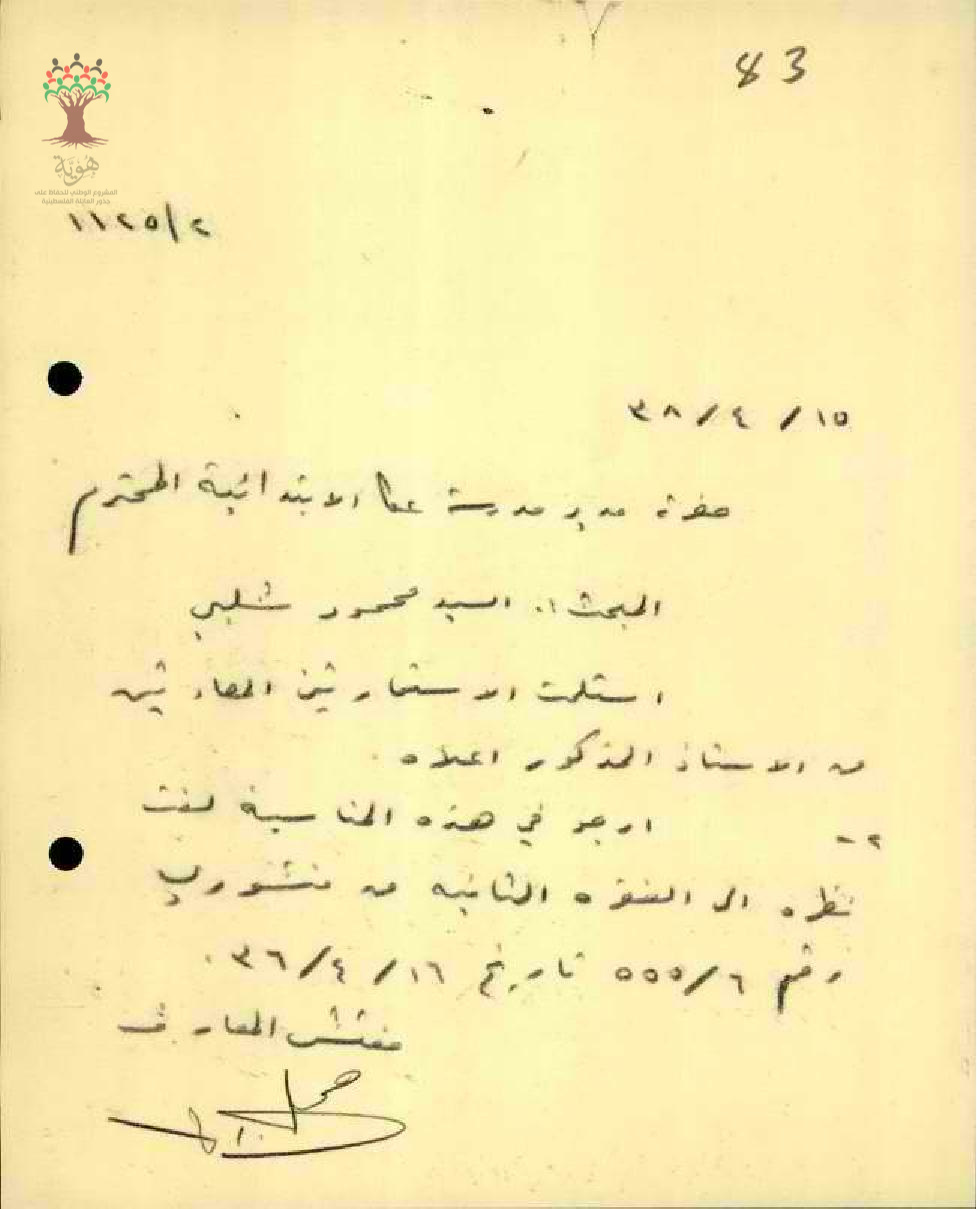 83
هُوِيَّة
المشروع الوطني للحفاظ على
جذور العائلة الفلسطينية
١١٢٥/٢
١٥/ ٤ /٣٨
حضرة مدير مدرسة عكا الابتدائية المحترم
المبحث ١. السيد محمود شلبي
استلمت الاستمارتين
من الاستاذ المذكور اعلاه.
٢- ارجو في هذه المناسبة لفت
نظره الى الفقره الثانيه من منشوري
رقم ٥٥٥/٦ تاريخ ١٦/ ٤ /٣٦.
مفتش المعارف